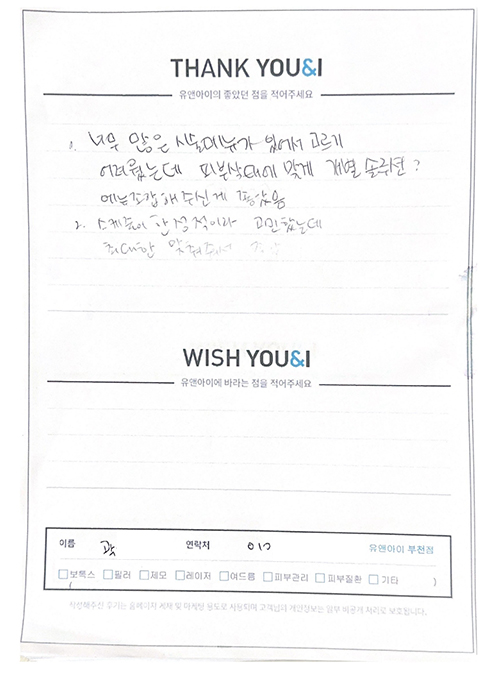 THANK YOU&I
유앤아이의 좋았던 점을 적어주세요
1. 너무 많은 시술메뉴가 있어서 고르기
어려웠는데 피부상태에 맞게 개별 솔루션?
해주신게 좋았음
2. 스케줄이 한정적이라 고민했는데
최대한 맞춰주셔서
WISH YOU&I
유앤아이에 바라는 점을 적어주세요
이름 곽 연락처 010 유앤아이 부천점
□보톡스 □필러 □제모 □레이저 □여드름 □피부관리 □피부질환 □기타
( )
작성해주신 후기는 홈페이지 게재 및 마케팅 용도로 사용되며 고객님의 개인정보는 일부 비공개 처리로 보호됩니다.